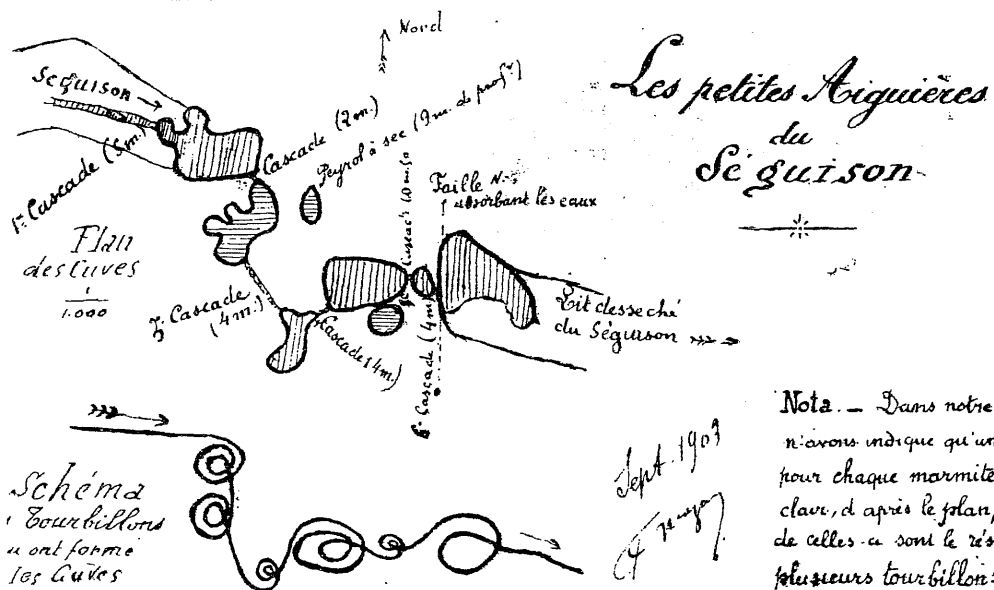 Nord
Les petites Aiguières
du
Séguison
Séguison
1re Cascade (5 m.)
Cascade (2 m.)
Peyrol à sec (9 m. de prof.r)
Faille N-S
absorbant les eaux
Plan
des Cuves
1
1.000
3e Cascade
(4 m.)
Cascade (4 m.)
Cascade (4 m.)
Lit desseché
du Séguison
Schéma
Tourbillons
ont formé
les Cuves
Sept. 1903
Nota. — Dans notre
n'avons indiqué qu'un
pour chaque marmite
clair, d'après le plan,
de celles-ci sont le rés
plusieurs tourbillons